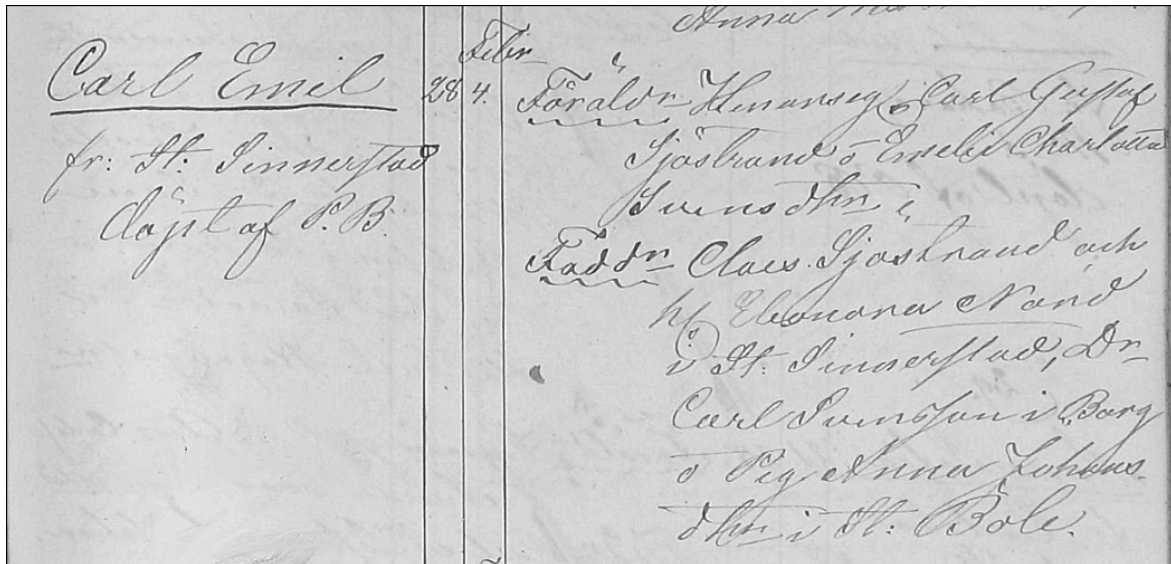 Anna
Febr
Carl Emil 28 4.
fr: St. Sinnerstad
döpt af P. B.
Föräldr Hemanseg Carl Gustaf
Sjöstrand o Emelie Charlotta
Svensdhr
Faddr Claes Sjöstrand och
h. Eleonora Nord
i St. Sinnerstad, Dr
Carl Svensson i Borg
o Pig Anna Johans
dhr i St: Bole.